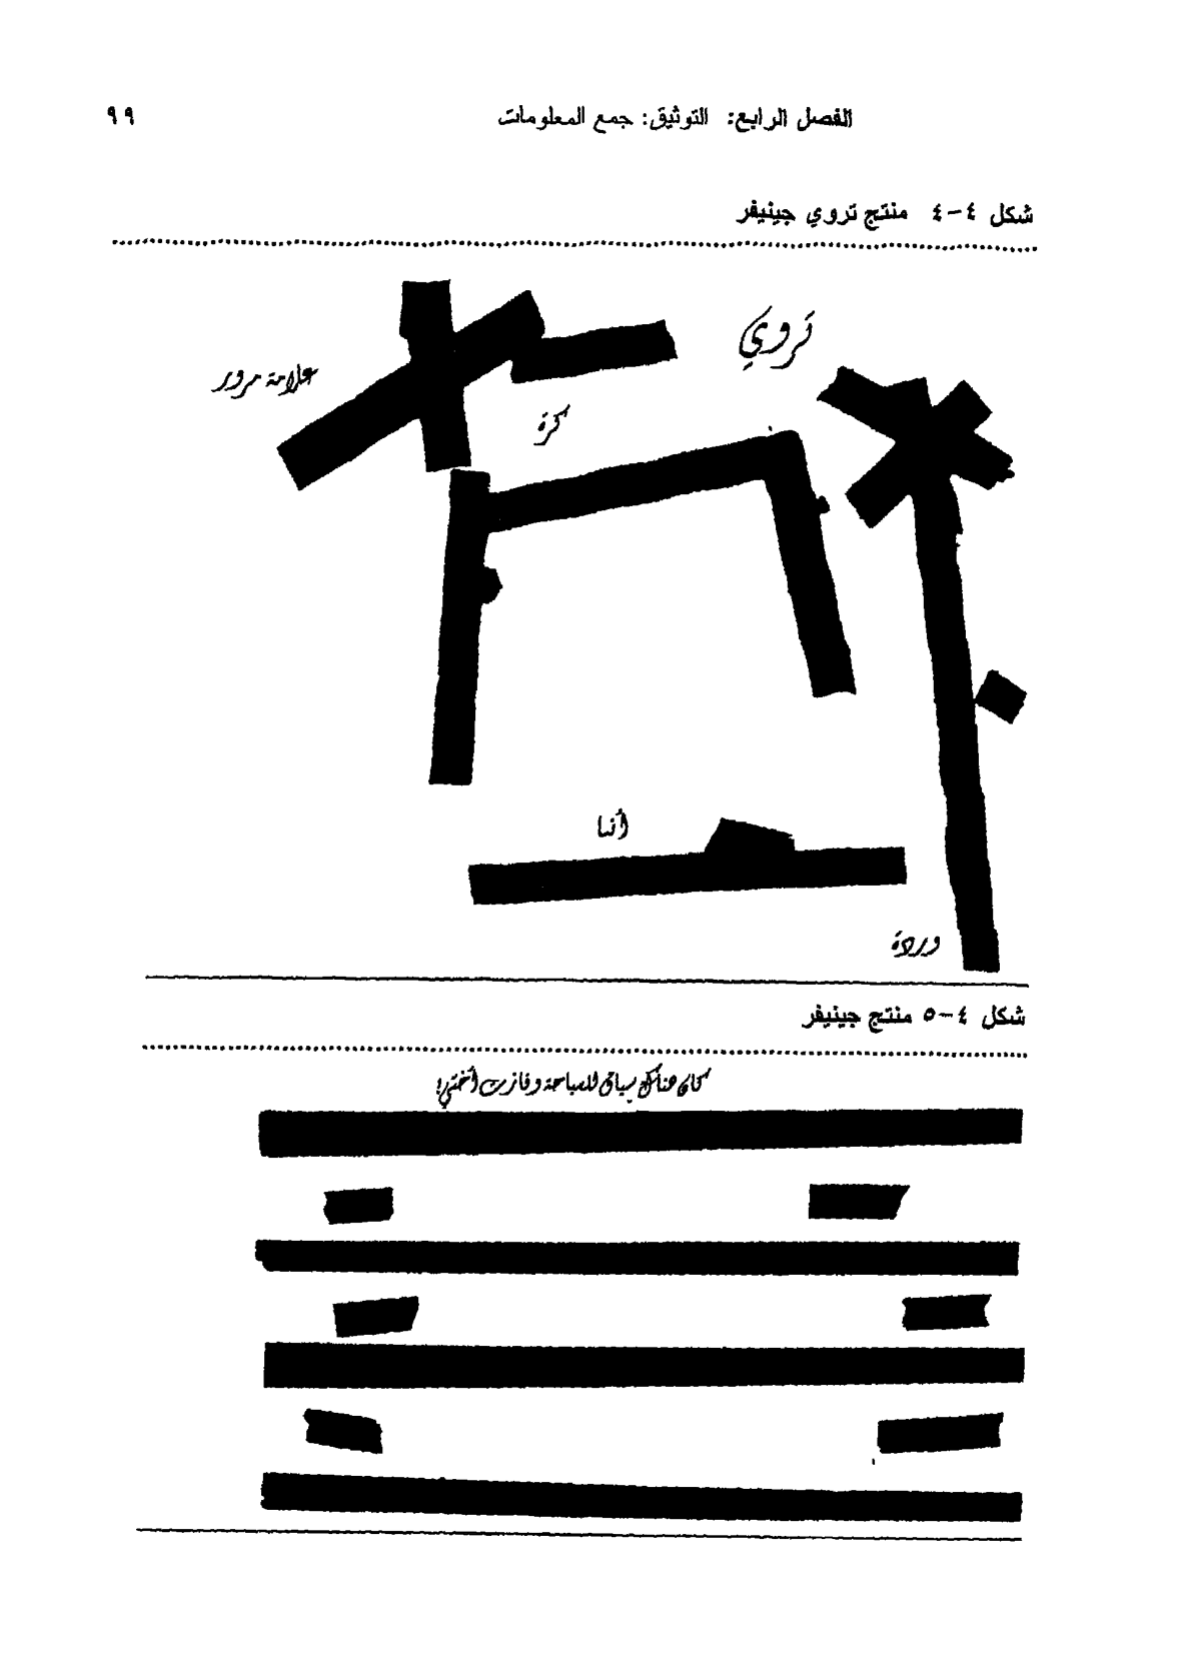 الفصل الرابع: التوثيق: جمع المعلومات ٩٩
شكل ٤-٤ منتج تروي جينيفر
تروي
علامة مرور
كرة
أنا
وردة
شكل ٤-٥ منتج جينيفر
كان هناك سباق للسباحة وفازت أختي!